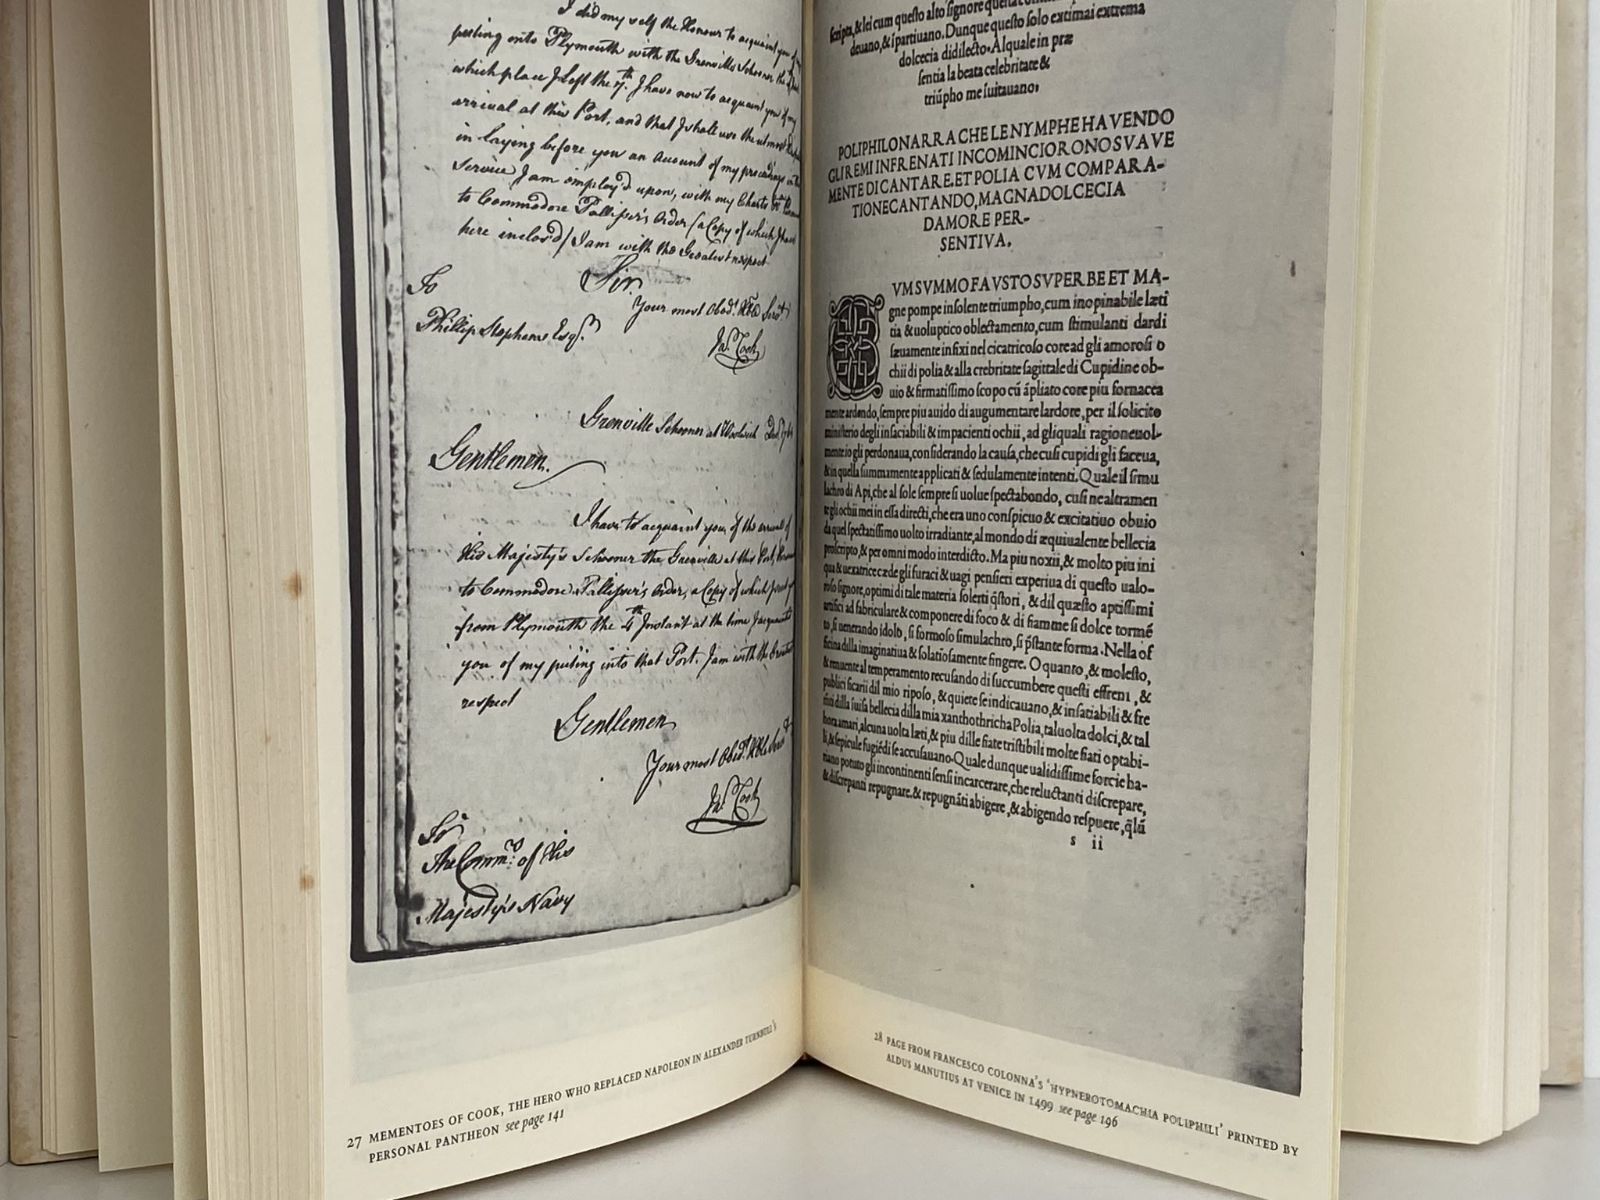 I did my self the Honour to acquaint you of my
puting into Plymouth with the Grenville Schooner the
which place I left the 7th. I have now to acquaint you of my
arrival at this Port, and that I shall use the utmost
in laying before you an Account of my proceedings on the
Service I am employ'd upon, with my Charts
to Commodore Palliser's Order (a Copy of which I have
here inclos'd) I am with the Greatest respect
Sir
To
Your most Obedt. Hble Servt
Phillip Stephens Esqr.
Jas. Cook
Grenville Schooner at Woolwich
Gentlemen.
I have to acquaint you of the arrival of
His Majesty's Schooner the Grenville at this Port,
to Commodore Palliser's Order, a Copy of which
from Plymouth the 4th Instant at the time I acquainted
you of my puting into that Port. I am with the Greatest
respect
Gentlemen
Your most Obedt. Hble Servt
Jas. Cook
To
The Commrs. of His
Majesty's Navy
27 MEMENTOES OF COOK, THE HERO WHO REPLACED NAPOLEON IN ALEXANDER TURNBULL'S
PERSONAL PANTHEON see page 141
scripta, & lei cum questo alto signore
deuano, & spartiuano. Dunque questo solo extimai extrema
dolcecia didilecto. Alquale in præ
sentia la beata celebritate &
triũpho me suitauano.
POLIPHILO NARRA CHE LE NYMPHE HAVENDO
GLI REMI INFRENATI INCOMINCIORONO SVAVE
MENTE DI CANTARE. ET POLIA CVM COMPARA-
TIONE CANTANDO, MAGNA DOLCECIA
DAMORE PER-
SENTIVA.
VM SVMMO FAVSTO SVPERBE ET MA-
gne pompe insolente triumpho, cum inopinabile læti
tia & uoluptico oblectamento, cum stimulanti dardi
sæuamente infixi nel cicatricoso core ad gli amorosi o
chii di polia & alla crebritate sagittale di Cupidine ob-
uio & firmatissimo scopo cũ ápliato core piu fornacea
mente ardendo, sempre piu auido di augumentare lardore, per il solicito
ministerio degli insaciabili & impacienti ochii, ad gliquali ragioneuol-
mente io gli perdonaua, considerando la causa, che cusi cupidi gli faceua,
& in quella summamente applicati & sedulamente intenti. Quale il simu
lachro di Api, che al sole sempre si uolue spectabondo, cusi ne altramen
te gli ochii mei in essa directi, che era uno conspicuo & excitatiuo obuio
da quel spectatissimo uolto irradiante, al mondo di æquiualente bellecia
proscripto, & per omni modo interdicto. Ma piu noxii, & molto piu ini
qua & uexatrice cæde gli furaci & uagi pensieri experiua di questo ualo-
roso signore, optimi di tale materia solerti q̃stori, & dil quæsto aptissimi
artifici ad fabriculare & componere di foco & di fiamme si dolce tormẽ
to, si uenerando idolo, si formoso simulachro, si p̃stante forma. Nella of
ficina dilla imaginatiua & solatiosamente fingere. O quanto, & molesto,
& renuente al temperamento recusando di succumbere questi effreni, &
publici sicarii dil mio riposo, & quiete se indicauano, & insatiabili & fre
dilla suisa bellecia dilla mia xanthothricha Polia, taluolta dolci, & tal
hora amari, alcuna uolta læti, & piu dille fiate tristibili molte fiati optabi-
li, & sepicule fugiẽdi se accusauano. Quale dunque ualidissime forcie ha-
potuto gli incontinenti sensi incarcerare, che reluctanti discrepare,
& discrepanti repugnare. & repugnãti abigere, & abigendo respuere, q̃lũ
s ii
28 PAGE FROM FRANCESCO COLONNA'S 'HYPNEROTOMACHIA POLIPHILI' PRINTED BY
ALDUS MANUTIUS AT VENICE IN 1499 see page 196